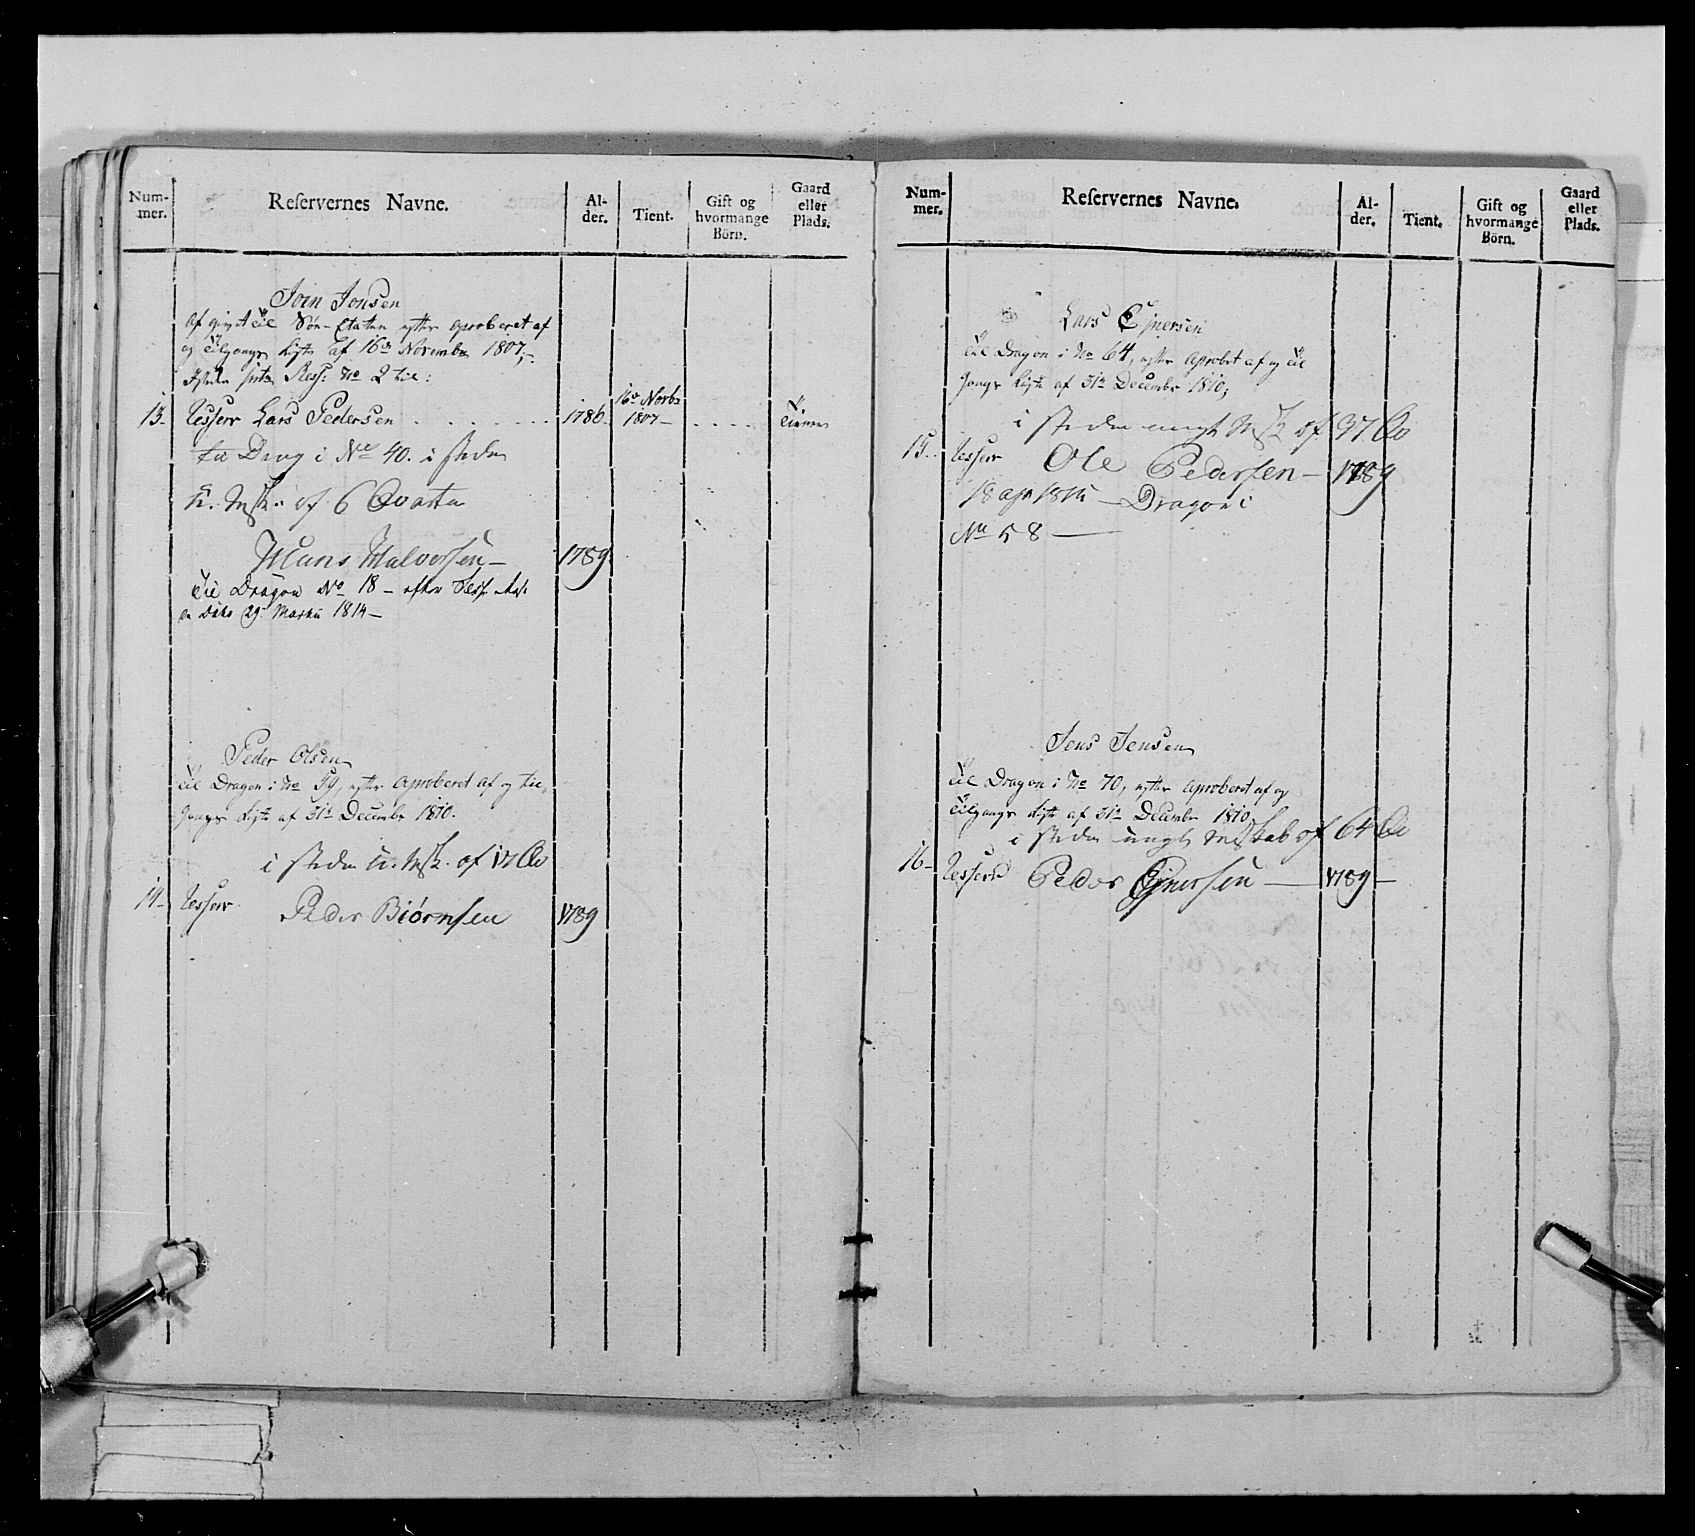 Num-
mer.
Reservernes Navne.
Al-
der.
Tient.
Gift og
hvormange
Börn.
Gaard
eller
Plads.
Join Jonsen
Af givet til Söe-Etaten efter aproberet af
og tilgangs Liste af 16de Novembr 1807,
Ress: No 2 til:
13. Reserv Lars Pedersen 1786. 16de Novbr
1807
til Drag i No 40. i steden
u. Msk. af 6 Qvarteer
Hans Halversen 1789
til Dragon No 18 - efter Sess.
29 Martii 1814
Peder Olsen
til Dragon i No 59, efter aproberet af og til-
gangs Liste af 31te Decembr 1810.
i steden u. Msk. af 17 Qv
14. Reserv Peder Biörnsen 1789
Num-
mer.
Reservernes Navne.
Al-
der.
Tient.
Gift og
hvormange
Börn.
Gaard
eller
Plads.
Lars Ejnersen
til Dragon i No 64, efter aprobet af og til
gangs Liste af 31te Decembr 1810,
i steden ungt Msk af 37 Qv
15. Reserv Ole Pedersen 1789
18 apr Dragon i
No 58
Jens Jensen
til Dragon i No 70, efter aproberet af og
tilgangs Liste af 31te Decembr 1810
i steden ungt Mskab af 64 Qv
16 Reserv Peder Ejnersen 1789